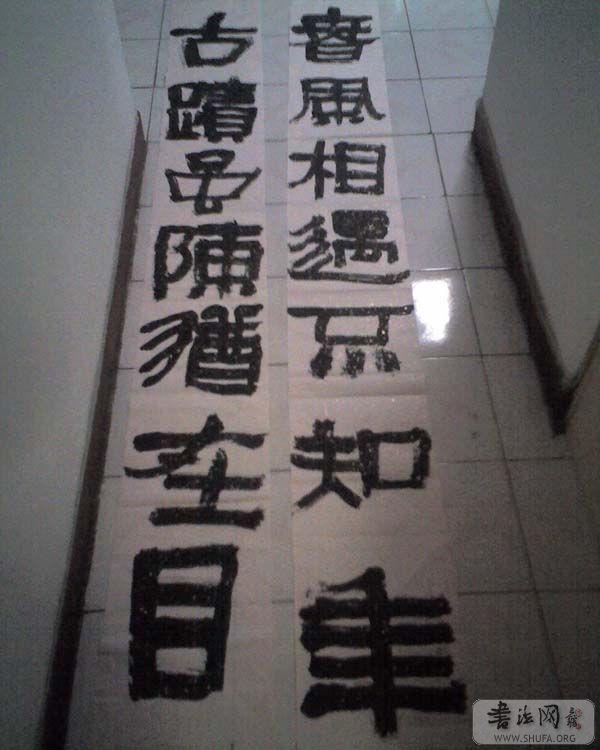 春風相遇不知年
古蹟虽陳猶在目
書法网
WWW.SHUFA.ORG